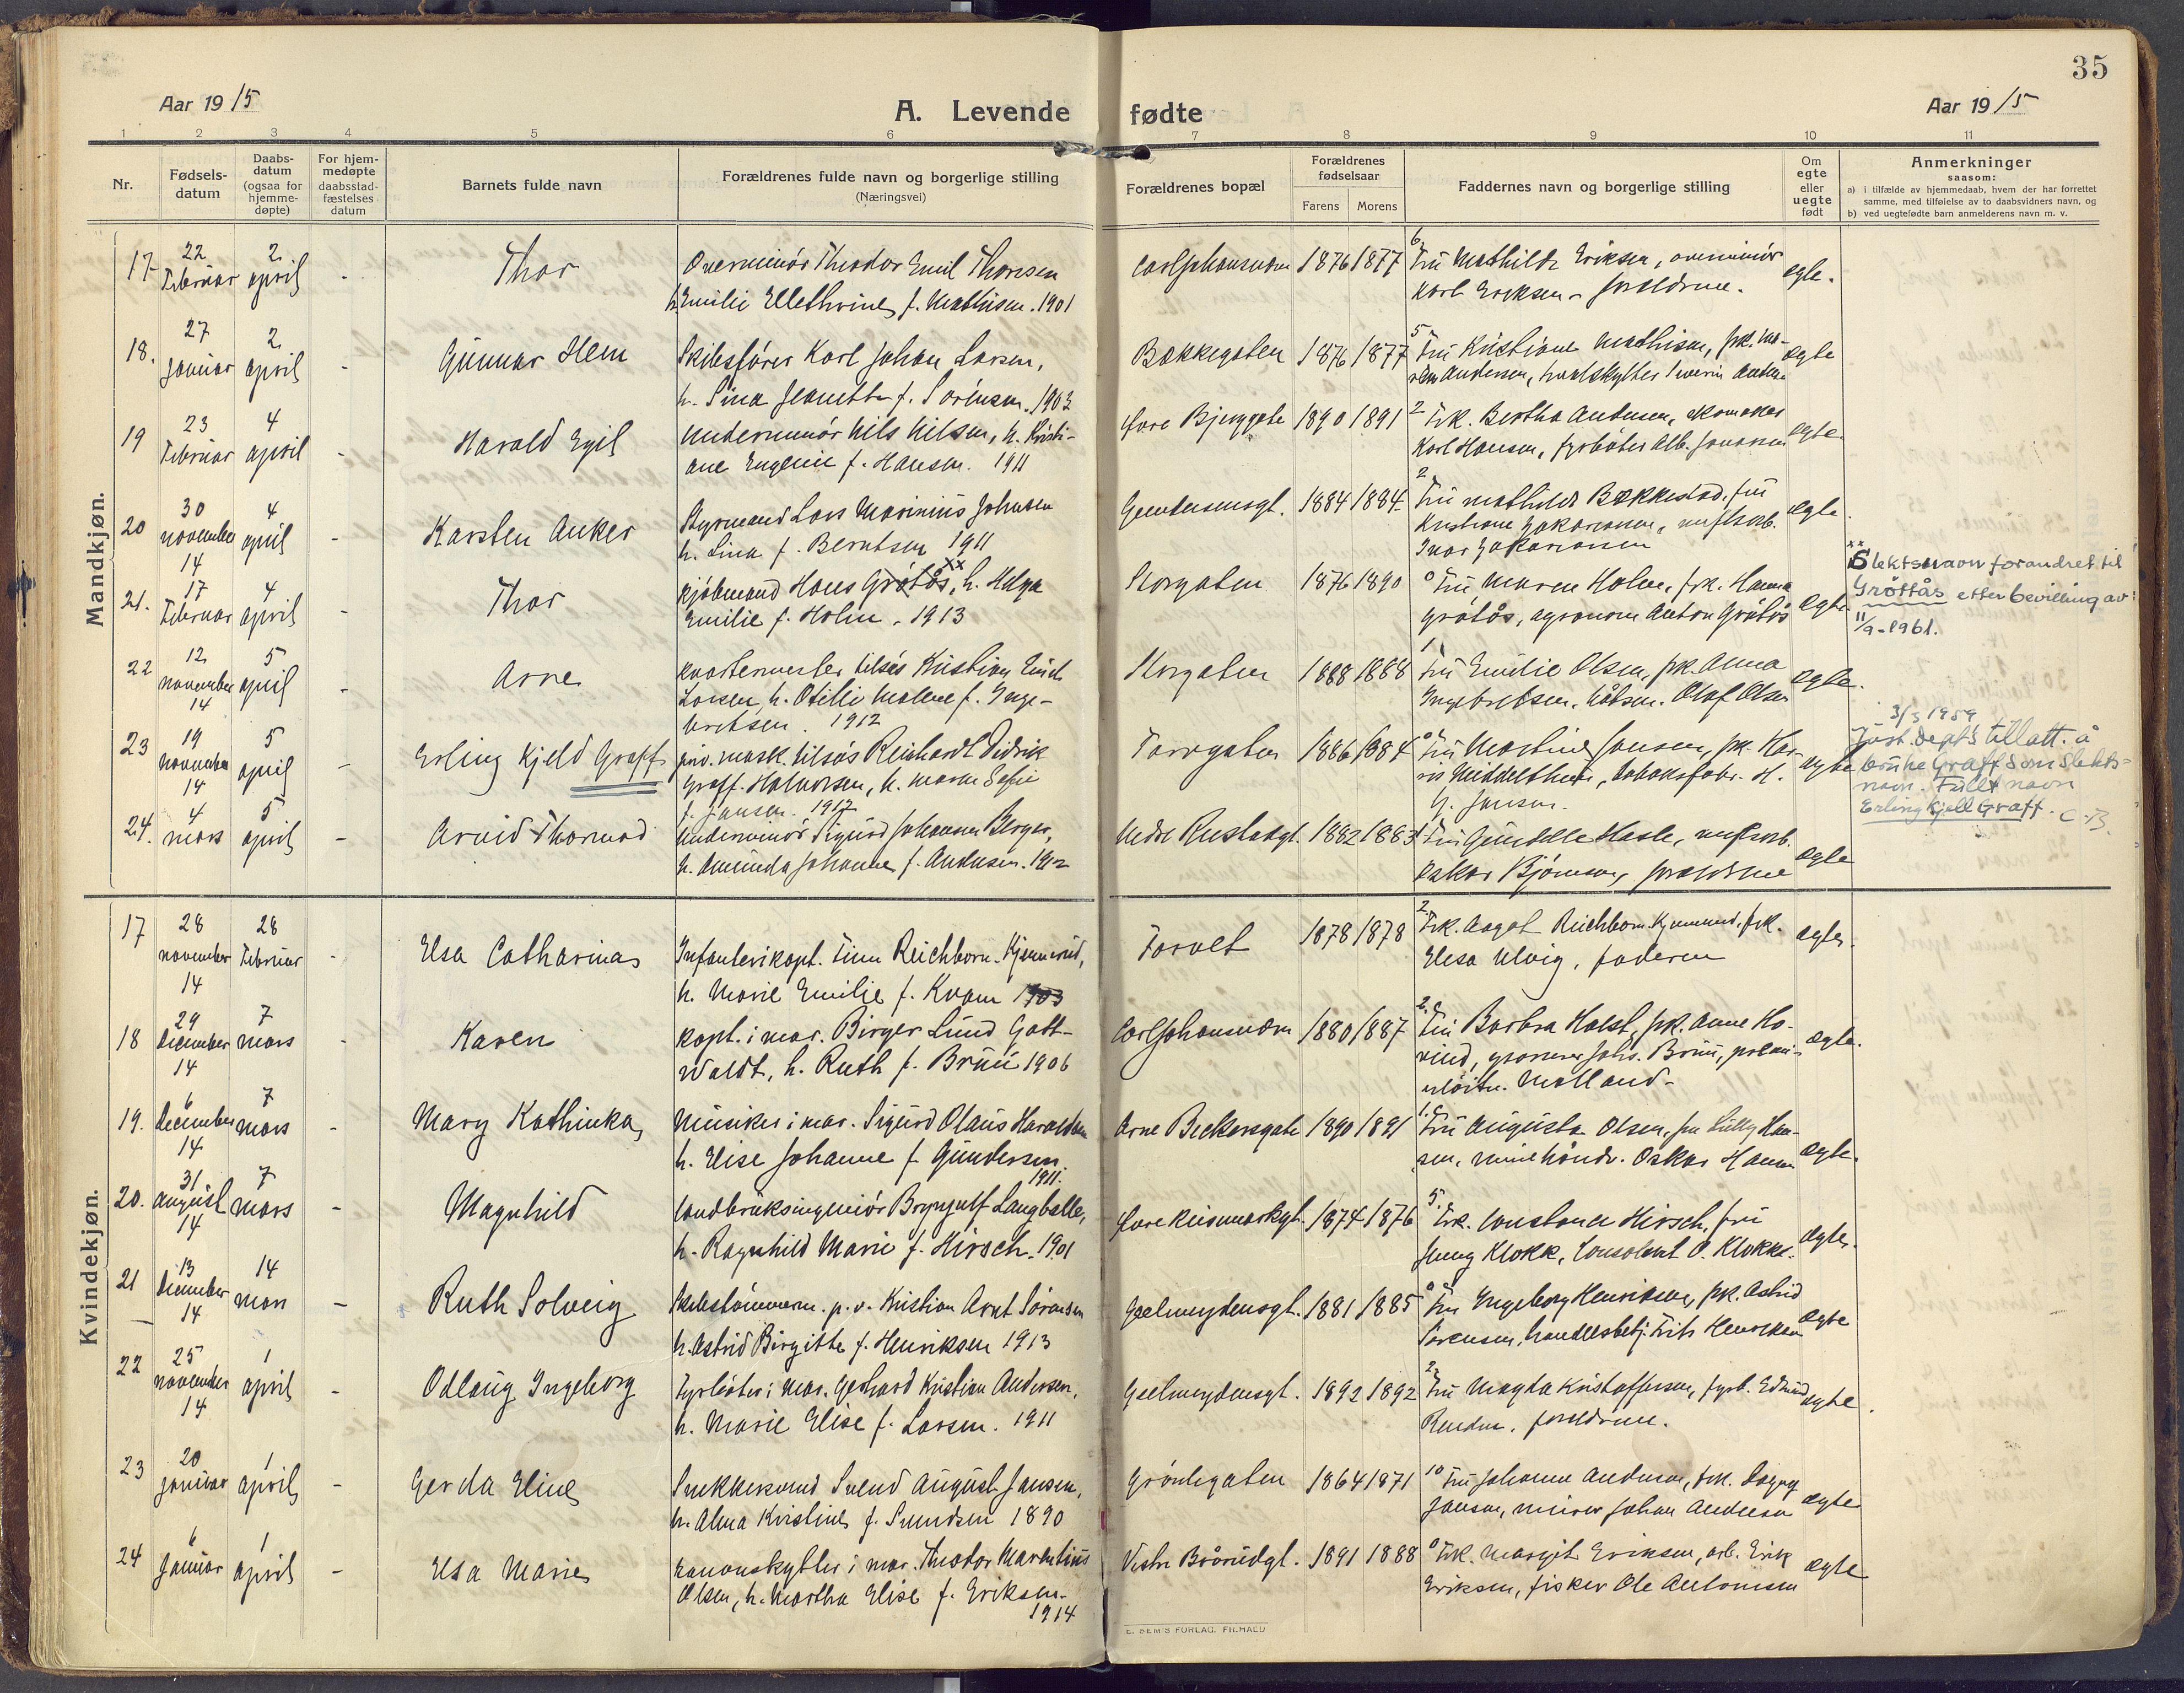 35
Aar 1915
A. Levende fødte
Aar 1915
1 2 3 4 5 6 7 8 9 10 11
Nr.
Fødsels-
datum
Daabs-
datum
(ogsaa for
hjemme-
døpte)
For hjem-
medøpte
daabsstad-
fæstelses
datum
Barnets fulde navn
Forældrenes fulde navn og borgerlige stilling
(Næringsvei)
Forældrenes bopæl
Forældrenes
fødselsaar
Farens Morens
Faddernes navn og borgerlige stilling
Om
egte
eller
uegte
født
Anmerkninger
saasom:
a) i tilfælde av hjemmedaab, hvem der har forrettet
samme, med tilføielse av to daabsvidners navn, og
b) ved uegtefødte barn anmelderens navn m. v.
Mandkjøn.
17 22 Februar 2 april - Thor
Overminör Theodor Emil Thoresen
h. Emilie Ellethrine f. Mathisen. 1901
Carl Johansværn 1876 1877
6 Fru Mathilde Eriksen, overminör
Karl Eriksen, forældrene.
egte.
18. 27 Januar 2 april - Gunnar Hem
Skibsförer Karl Johan Larsen,
h. Sina Jeanette f. Sörensen. 1903
Bækkegaten 1876 1877
5 Fru Kristiane Mathisen, frk. Ma-
Andersen, hvalskytter Severin
egte
19 23 Februar 4 april - Harald Egil
Underminör Nils Nilsen, h. Kristi-
ane Eugenie f. Hansen. 1911
1890 1891
2 Frk. Bertha Andersen, skomaker
Karl Hansen, fyrböter Alb.
egte.
20 30 november 14 4 april - Karsten Anker
Styrmand Lars Marinius Johnsen
h. Lina f. Berntsen 1911
1884 1884
2 Fru Mathilde Bækkestad, fru
Kristiane Zakariassen,
Ivar Zakariassen
egte.
21. 17 Februar 4 april - Thor
Kjöbmand Hans Grötås xx, h. Helga
Emilie f. Holm. 1913
Storgaten 1876 1890
0 Fru Maren Holm, frk. Hanna
Grötås, agronom Anton Grötås
egte.
xx Slektsnavn forandret til
Gröttås etter bevilling av
11/9-1961.
22 12 november 14 5 april - Arne
Kvartermester tilsös Kristian Emil
Larsen, h. Otilie Malene f. Inge-
bretsen. 1912
Storgaten 1888 1888
1 Fru Emilie Olsen, frk. Anna
Ingebretsen, Olaf Olsen
egte.
23 19 november 14 5 april - Erling Kjeld Graff
mask. tilsös Reinhardt Didrik
Graff-Halvorsen, h. Maren Sofie
f. Jansen. 1912
Torvgaten 1886 1884
0 Fru Martine Jansen, frk.
Middelthon, tobaksfabr. H.
Jansen.
egte
3/3 1959
Just.dept's tillatt. å
bruke Graff som slekts-
navn. Fullt navn
Erling Kjell Graff. C.B.
24. 4 mars 5 april - Arvid Thormod
Underminör Sigurd Johansen Berger,
h. Amunda Johanne f. Andersen. 1912
Nedre Rustadgt. 1882 1883
Fru Gunelle Hasle,
Oskar Björnsen, forældrene
egte
Kvindekjøn.
17 28 november 14 28 Februar - Elsa Catharina
Infanterikapt. Finn Reichborn-Kjennerud,
h. Marie Emilie f. Kvam 1903
Torvet 1878 1878
2 Frk. Aagot Reichborn-Kjennerud, frk.
Elisa Ulvig, faderen
egte.
18 29 december 14 7 mars - Karen
kapt. i mar. Birger Lund Gott-
waldt, h. Ruth f. Bruu 1906
Carl Johansværn 1880 1887
2 Fru Barbra Holst, frk. Anne Ho-
vind, grosserer Johs. Bruu, premi-
erlöitn. Molland-
egte.
19. 6 december 14 7 mars - Mary Kathinka
Musiker i mar. Sigurd Olaus Haraldsen
h. Elise Johanne f. Gundersen. 1911.
Arne Bickersgate 1890 1891
1 Fru Augusta Olsen, fru Lully Han-
sen, Oskar Hansen
egte.
20. 31 august 14 7 mars - Magnhild
Landbruksingeniör Brynjulf Langballe,
h. Ragnhild Marie f. Hirsch. 1901
1874 1876
5 Frk. Constance Hirsch, fru
Jenny Klokk, konsulent O. Klokk.
egte.
21 13 december 14 14 mars - Ruth Solveig
Skibstömmerm. p.v. Kristian Arnt Sörensen
h. Astrid Birgitte f. Henriksen 1913
Geelmuydensgt. 1881 1885
0 Fru Ingeborg Henriksen, frk. Astrid
Sörensen, handelsbetj. Frits Henriksen
egte
22 25 november 14 1 april - Odlaug Ingeborg
Fyrböter i mar. Gerhard Kristian Andersen,
h. Marie Elise f. Larsen. 1911
Geelmuydensgt. 1892 1892
2 Fru Magda Kristoffersen, fyrb. Edvard
forældrene.
egte.
23 20 Januar 1 april - Gerda Eline
Snekkersvend Svend August Jansen,
h. Alma Kristine f. Svendsen 1890
Grönligaten 1864 1871
10 Fru Johanne Andersen, frk. Dagny
Jansen, murer Johan Andersen
egte
24 6 Januar 1 april - Elsa Marie
Kanonskytter i mar. Theodor Marentius
Olsen, h. Martha Elise f. Eriksen. 1914
Vestre Brårudgt. 1891 1888
0 Frk. Margit Eriksen, arb. Erik
Eriksen, fisker Ole Antonisen
egte
E. SEM'S FORLAG, FR.HALD